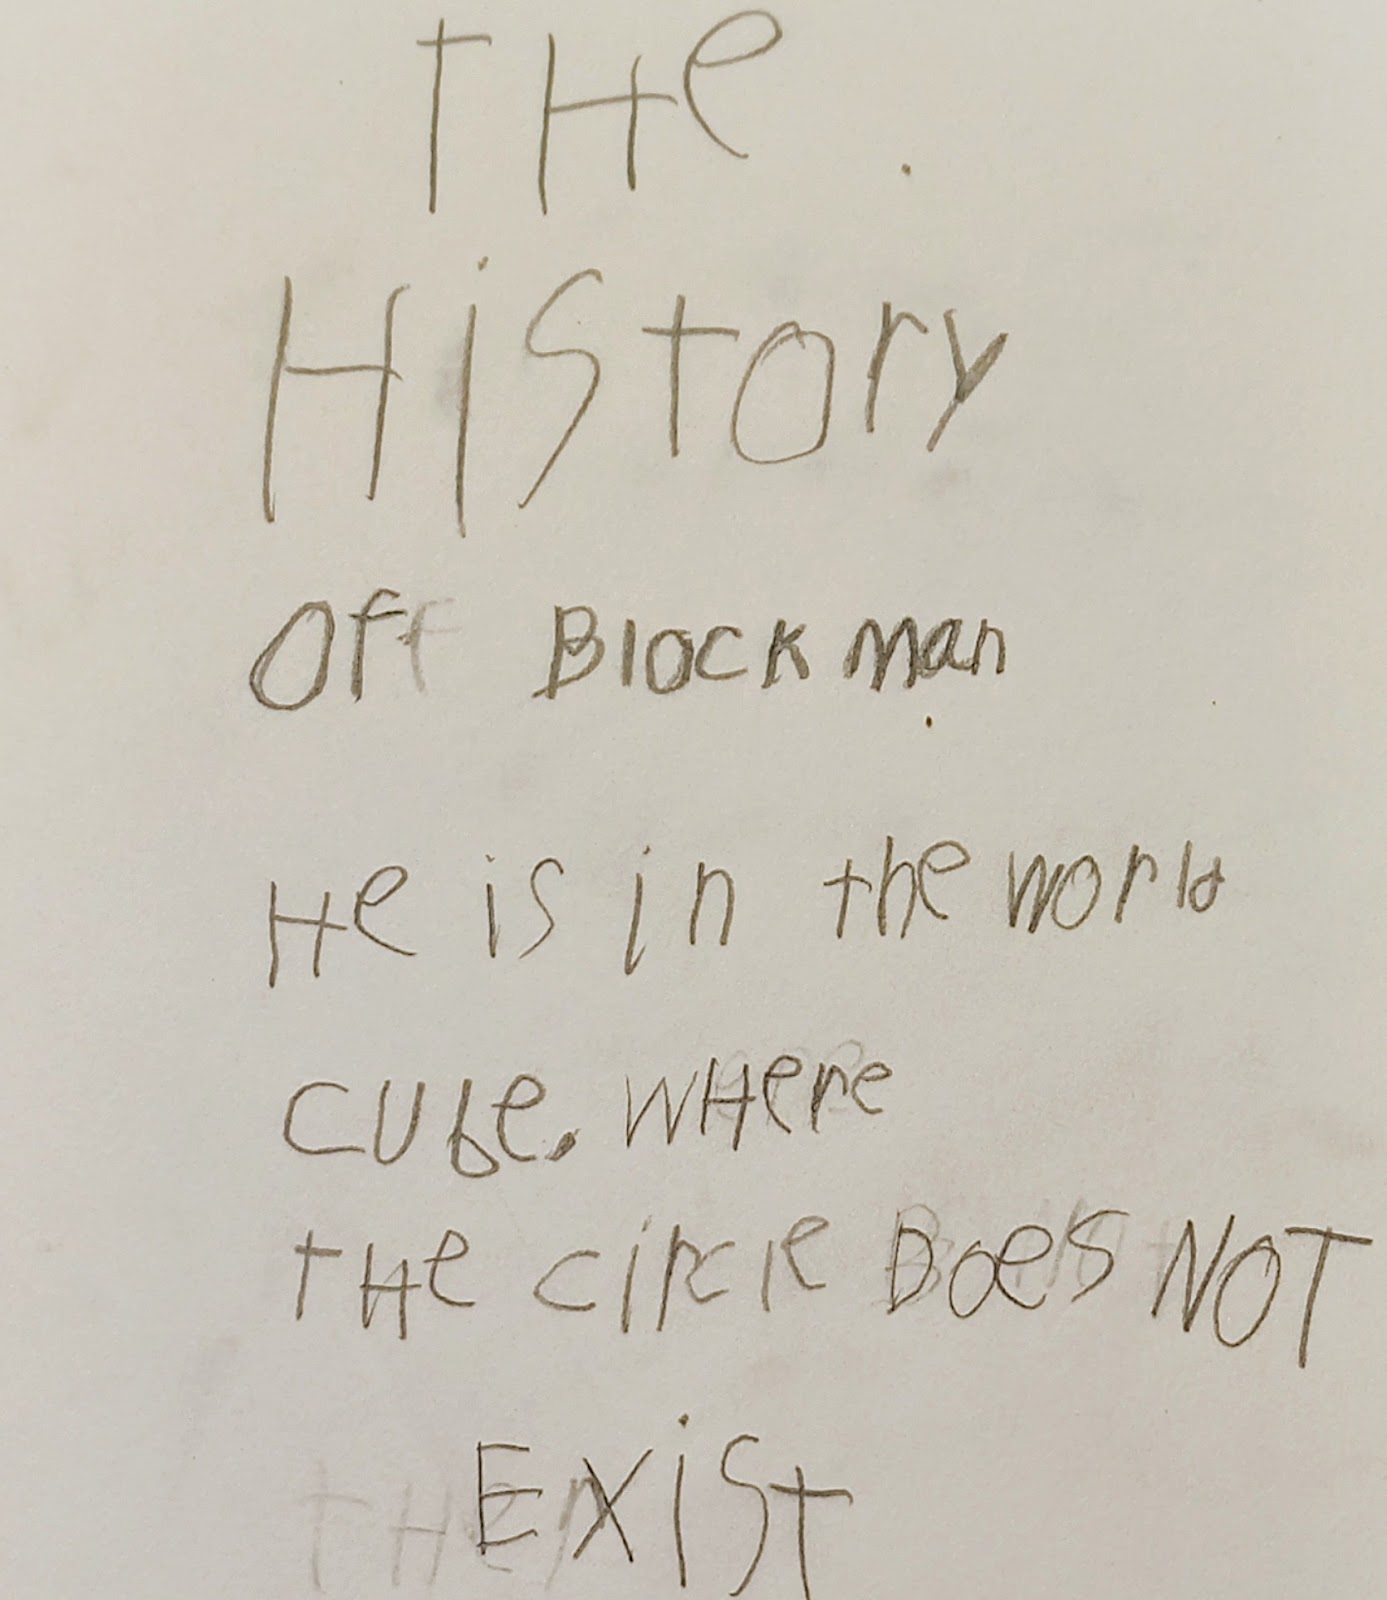 THe
HiStory
Of Block man
He is in the world
cube. WHere
THe circle Does NOT
EXiSt